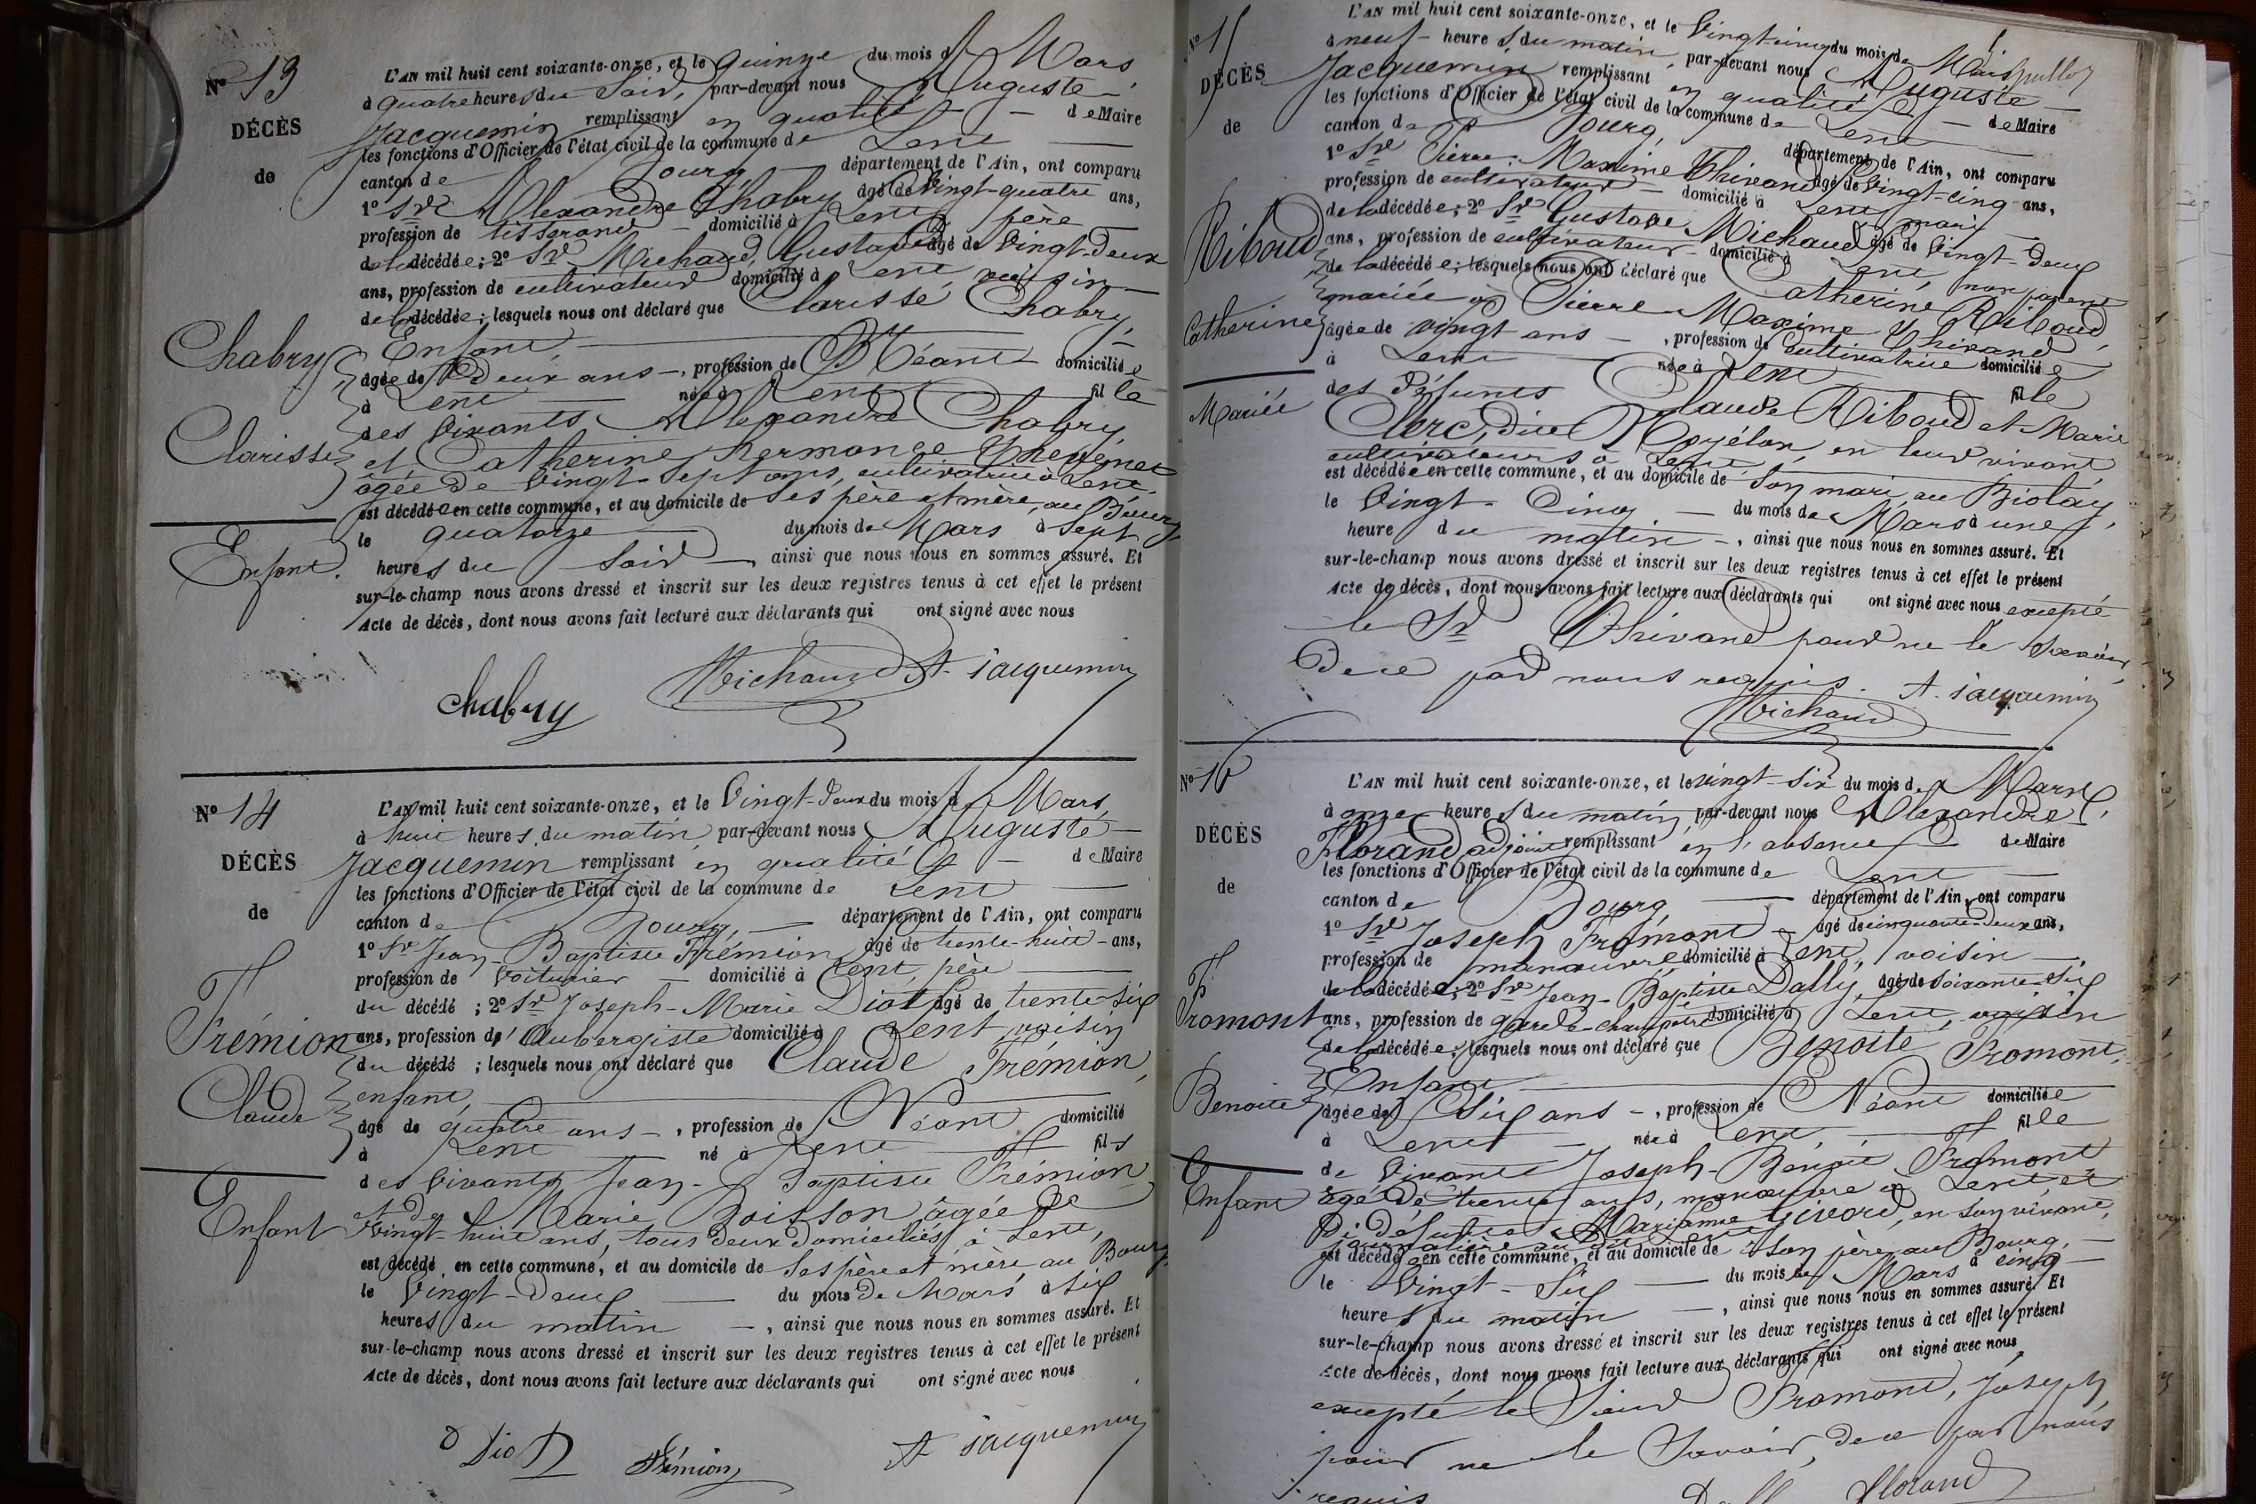 N° 13
DÉCÈS
de
Chabry
Clarisse
Enfant.
L'AN mil huit cent soixante-onze, et le quinze du mois de Mars,
à quatre heures du soir, par-devant nous Auguste
Jacquemin remplissant en qualité de Maire
les fonctions d'Officier de l'état civil de la commune de Lent
canton de Bourg département de l'Ain, ont comparu
1° Sr Alexandre Chabry âgé de vingt-quatre ans,
profession de tisserand domicilié à Lent père
de la décédée; 2° Sr Michaud, Gustave âgé de vingt-deux
ans, profession de cultivateur domicilié à Lent, voisin
de la décédée; lesquels nous ont déclaré que Clarisse Chabry,
Enfant,
âgée de deux ans, profession de Néant domiciliée
à Lent née à Lent fille
des vivants Alexandre Chabry,
et Catherine hermance Thevenet
agée de vingt-sept ans, cultivatrice à Lent
est décédée en cette commune, et au domicile de ses père et mère, au Bourg,
le quatorze du mois de Mars à sept
heures du soir ainsi que nous nous en sommes assuré. Et
sur-le-champ nous avons dressé et inscrit sur les deux registres tenus à cet effet le présent
Acte de décès, dont nous avons fait lecture aux déclarants qui ont signé avec nous
chabry Michaud A. Jacquemin
N° 14
DÉCÈS
de
Frémion
Claude
Enfant
L'AN mil huit cent soixante-onze, et le vingt-deux du mois de Mars,
à huit heures du matin, par-devant nous Auguste
Jacquemin remplissant en qualité de Maire
les fonctions d'Officier de l'état civil de la commune de Lent
canton de Bourg, département de l'Ain, ont comparu
1° Sr Jean-Baptiste Frémion âgé de trente-huit ans,
profession de voiturier domicilié à Lent, père
du décédé; 2° Sr Joseph-Marie Diot âgé de trente-six
ans, profession d'aubergiste domicilié à Lent, voisin
du décédé; lesquels nous ont déclaré que Claude Frémion,
enfant,
âgé de quatre ans, profession de Néant domicilié
à Lent né à Lent fils
des vivants Jean-Baptiste Frémion
et de Marie Boisson âgée de
vingt-huit ans, tous deux domiciliés à Lent,
est décédé en cette commune, et au domicile de ses père et mère, au Bourg
le vingt-deux du mois de Mars à six
heures du matin, ainsi que nous nous en sommes assuré. Et
sur-le-champ nous avons dressé et inscrit sur les deux registres tenus à cet effet le présent
Acte de décès, dont nous avons fait lecture aux déclarants qui ont signé avec nous
Diot Frémion A Jacquemin
N° 15
DÉCÈS
de
Riboud
Catherine
Mariée
L'AN mil huit cent soixante-onze, et le vingt-cinq du mois de Mars
à neuf heures du matin, par-devant nous Auguste
Jacquemin remplissant en qualité de Maire
les fonctions d'Officier de l'état civil de la commune de Lent
canton de Bourg, département de l'Ain, ont comparu
1° Sr Pierre-Maxime Thivand âgé de vingt-cinq ans,
profession de cultivateur domicilié à Lent, mari
de la décédée; 2° Sr Gustave Michaud âgé de vingt-deux
ans, profession de cultivateur domicilié à Lent, non parent
de la décédée; lesquels nous ont déclaré que Catherine Riboud,
mariée à Pierre Maxime Thivand
âgée de vingt ans, profession de cultivatrice domiciliée
à Lent née à Lent fille
des défunts Claude Riboud et Marie
Clerc, dite en leur vivant
cultivateurs à Lent,
est décédée en cette commune, et au domicile de son mari, au Biolay,
le vingt-cinq du mois de Mars à une
heure du matin, ainsi que nous nous en sommes assuré. Et
sur-le-champ nous avons dressé et inscrit sur les deux registres tenus à cet effet le présent
Acte de décès, dont nous avons fait lecture aux déclarants qui ont signé avec nous excepté
le Sr Thivand pour ne le savoir,
de ce par nous requis. A. Jacquemin
Michaud
N° 16
DÉCÈS
de
Fromont
Benoite
Enfant
L'AN mil huit cent soixante-onze, et le vingt-six du mois de Mars
à onze heures du matin, par-devant nous Alexandre
Florand adjoint remplissant en l'absence de Maire
les fonctions d'Officier de l'état civil de la commune de Lent
canton de Bourg département de l'Ain, ont comparu
1° Sr Joseph Fromont âgé de cinquante-deux ans,
profession de manœuvre domicilié à Lent, voisin
de la décédée; 2° Sr Jean-Baptiste Dally, âgé de soixante-six
ans, profession de garde-champêtre domicilié à Lent, voisin
de la décédée; lesquels nous ont déclaré que Benoite Fromont,
Enfant
âgée de six ans, profession de Néant domiciliée
à Lent née à Lent, fille
de vivant Joseph-Benoit Fromont
âgé de trente ans, manœuvre à Lent, et
de défunte Marianne en son vivant,
journalière au dit Lent
est décédée en cette commune, et au domicile de son père au Bourg,
le vingt-six du mois de Mars à cinq
heures du matin, ainsi que nous nous en sommes assuré. Et
sur-le-champ nous avons dressé et inscrit sur les deux registres tenus à cet effet le présent
Acte de décès, dont nous avons fait lecture aux déclarants qui ont signé avec nous
excepté le sieur Fromont, Joseph
pour ne le savoir, de ce par nous
requis Dally Florand